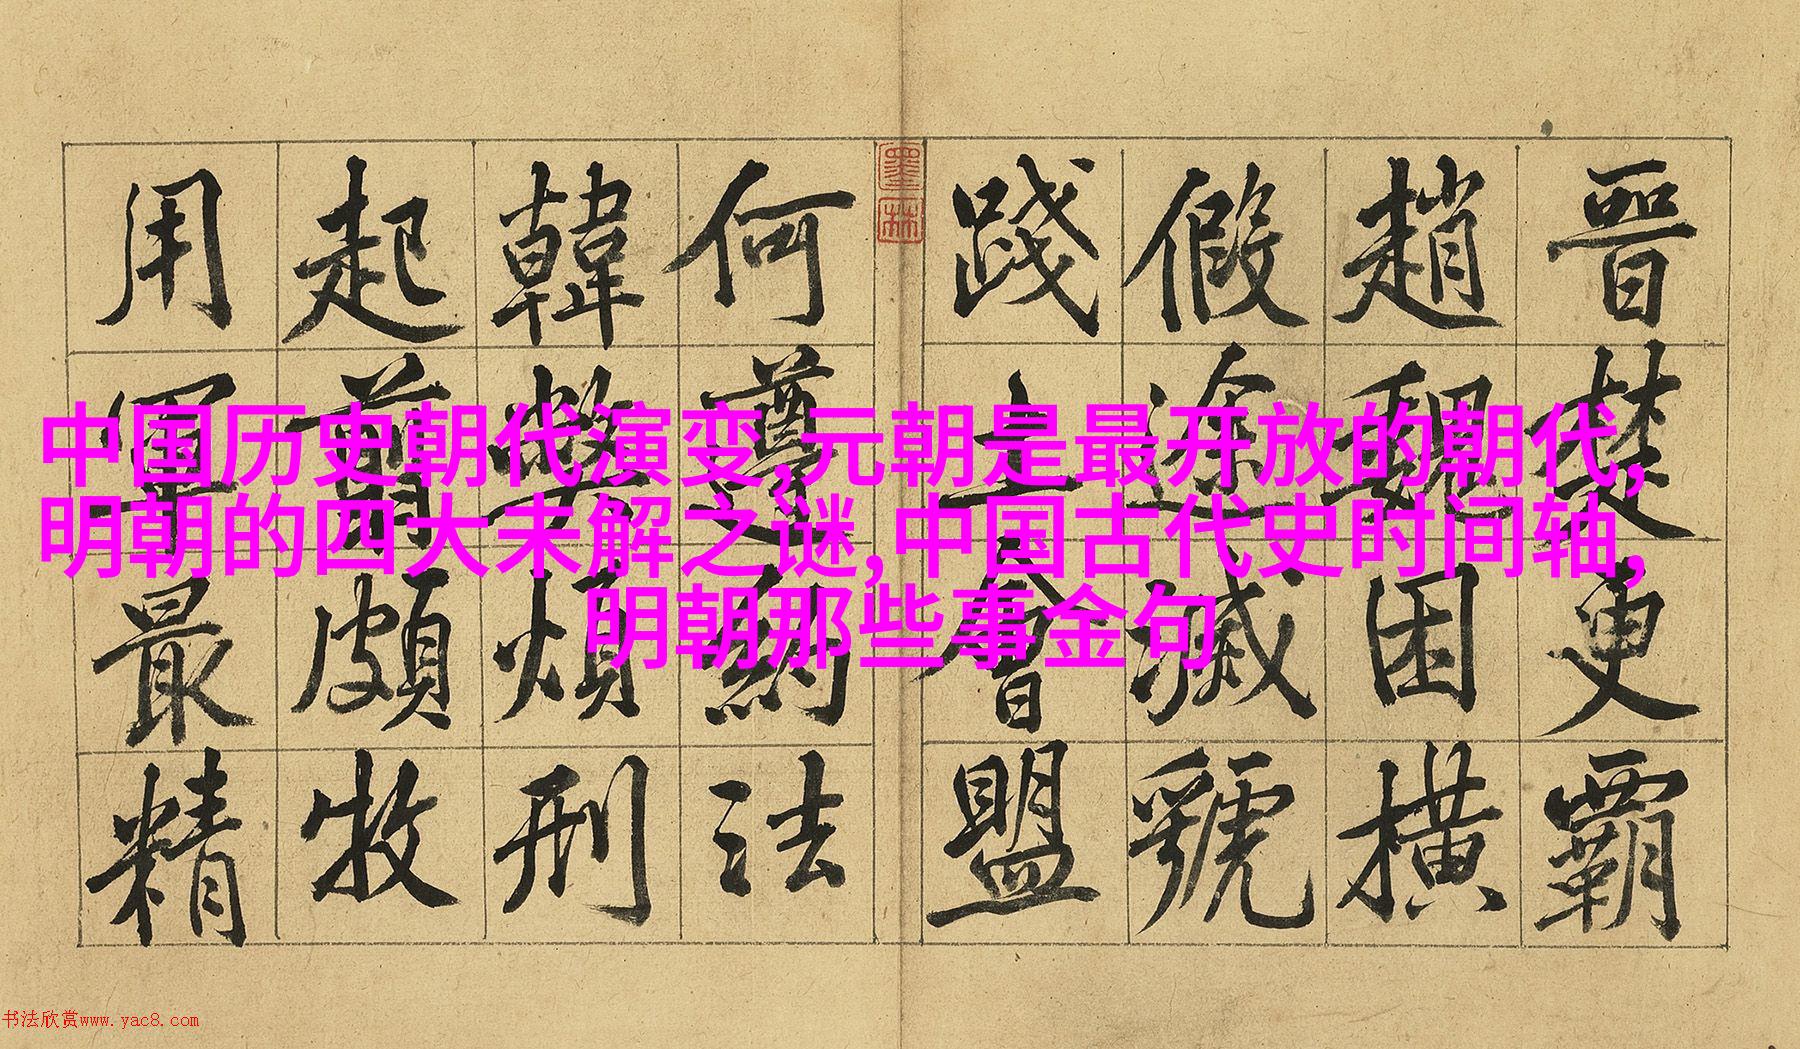 中国历史朝代演变,元朝是最开放的朝代,
明朝的四大未解之谜,中国古代史时间轴,
明朝那些事金句
晉楚更霸
趙魏困橫
假途滅虢
踐土會盟
墨林
何遵約法
韓弊煩刑
起翦頗牧
用軍最精
书法欣赏www.yac8.com